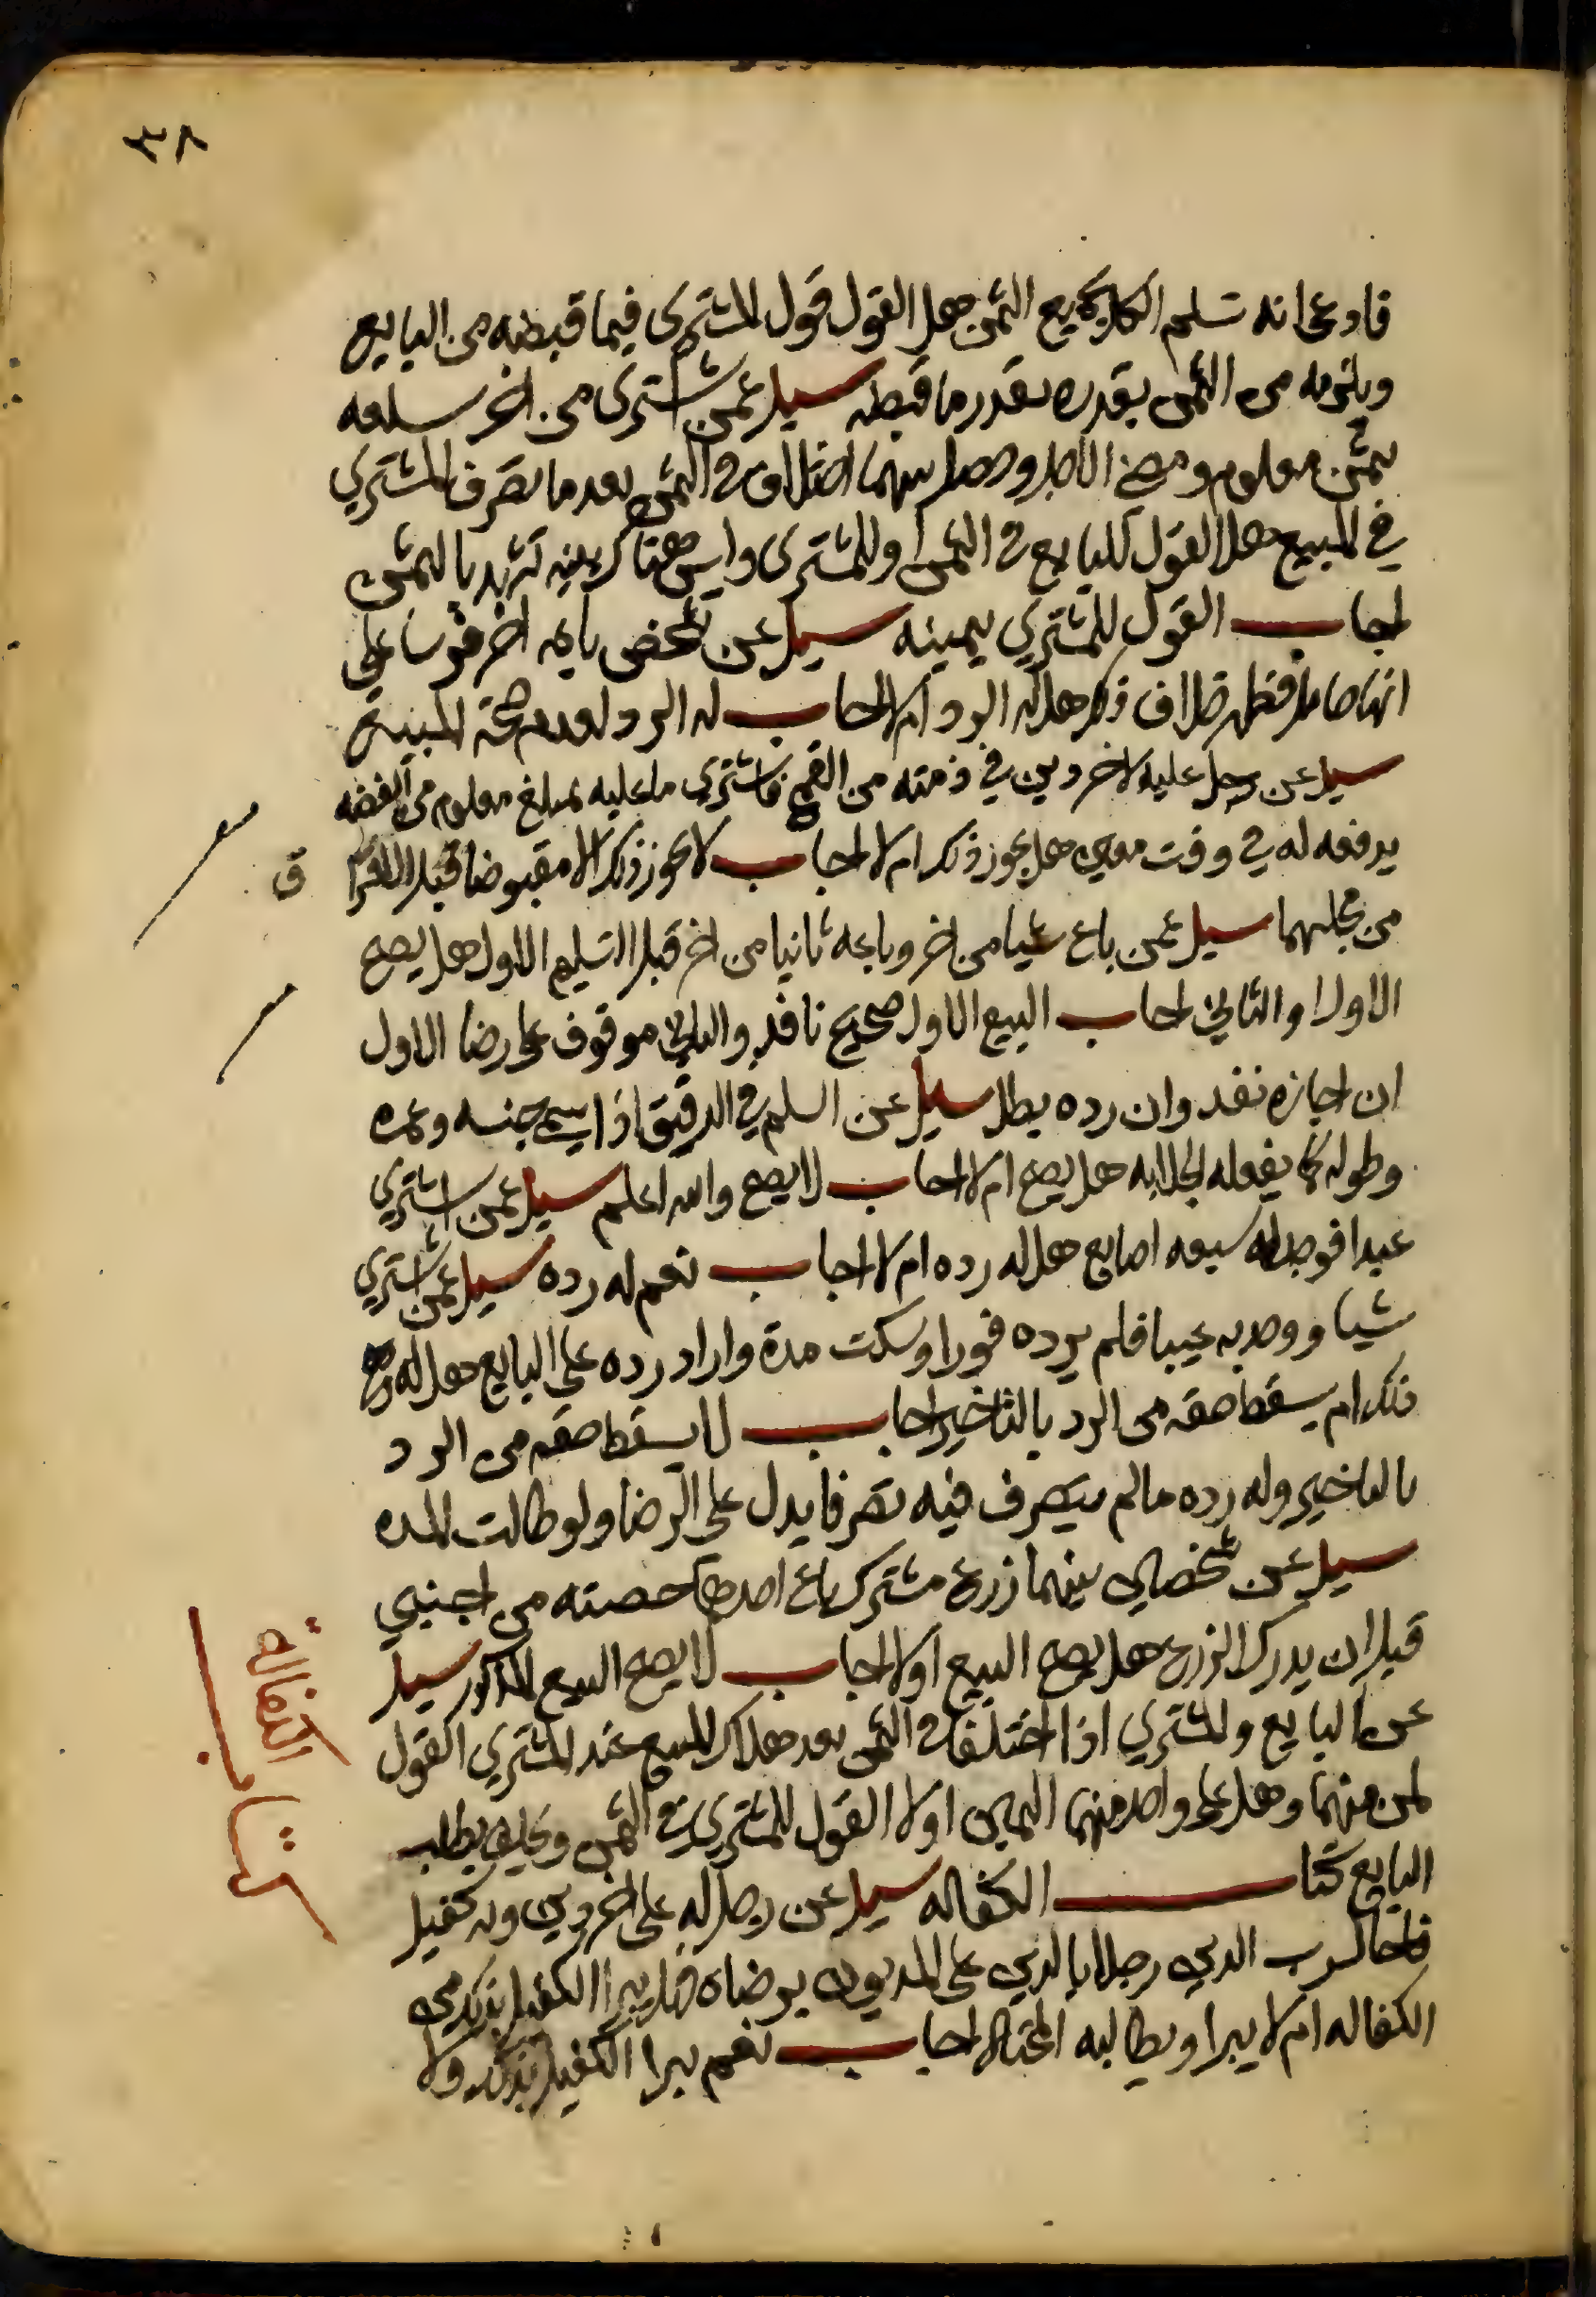 ٣٨
فادعى انه تسلم الكل بجميع الثمن هل القول قول المشتري فيما قبضه من البايع
ويلزمه من الثمن بقدره بقدر ما قبضه سيل عمن اشترى من اخر سلعه
بثمن معلوم ومضى الاجل وحصل بينهما اختلاف في الثمن بعد ما تصرف المشتري
في المبيع هل القول للبايع في الثمن او للمشتري وليس هناك بينه تشهد بالثمن
اجاب القول للمشتري بيمينه سيل عن شخص باعه اخر فرسا على
انها حامل فظهر خلاف ذلك هل له الرد ام لا اجاب له الرد لعدم صحة
سيل عن رجل عليه لاخر دين في ذمته من القمح فاشترى ما عليه بمبلغ معلوم من الفضه
يدفعه له في وقت معين هل يجوز ذلك ام لا اجاب لا يجوز ذلك الا مقبوضا قبل الافترا
ق
من مجلسهما سيل عمن باع شيا من اخر وباعه ثانيا من اخر قبل التسليم الاول هل يصح
الاول او الثاني اجاب البيع الاول صحيح نافذ والثاني موقوف على رضا الاول
ان اجازه نفد وان رده بطل سيل عن السلم في الدقيق اذا سمى جنسه
وطوله كما يفعله الجلابه هل يصح ام لا اجاب لا يصح والله اعلم سيل عمن اشترى
عبدا فوجد له سبعه اصابع هل له رده ام لا اجاب نعم له رده سيل عمن اشترى
شيا ووجد به عيبا فلم يرده فورا وسكت مدة واراد رده على البايع هل له
ذلك ام يسقط حقه من الرد بالتاخير اجاب لا يسقط حقه من الرد
بالتاخير وله رده مالم يتصرف فيه تصرفا يدل على الرضا ولو طالت المده
سيل عن شخصين بينهما زرع مشترك باع احدهما حصته من اجنبي
قبل ان يدرك الزرع هل يصح البيع اولا اجاب لا يصح البيع المذكور سيل
عن البايع والمشتري اذا اختلفا في الثمن بعد هلاك المبيع عند المشتري القول
لمن منهما وهل على واحد منهما اليمين اولا القول للمشتري في الثمن وكيف يطلب
البايع كتاب الكفاله سيل عن رجل له على اخر دين وله كفيل
فاحال رب الدين رجلا بالدين على المديون برضاه فهل يبرا الكفيل بذلك من
الكفاله ام لا يبرا ويطالبه المحتال اجاب نعم يبرا الكفيل بذلك ولا
كتاب الكفالة